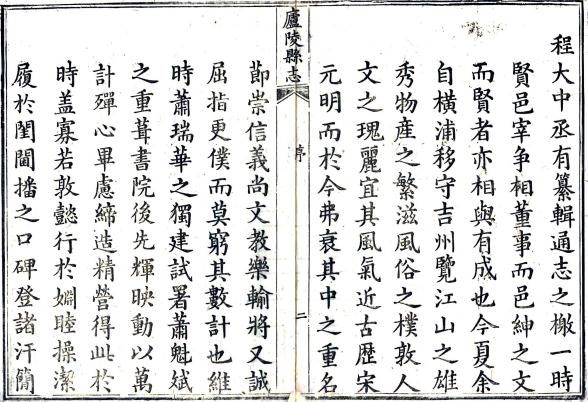 程大中丞有纂輯通志之檄一時
賢邑宰爭相董事而邑紳之文
而賢者亦相與有成也今夏余
自橫浦移守吉州覽江山之雄
秀物產之繁滋風俗之樸敦人
文之瑰麗宜其風氣近古歷宋
元明而於今弗衰其中之重名
廬陵縣志
序
二
節崇信義尚文教樂輸將又誠
屈指更僕而莫窮其數計也維
時蕭瑞華之獨建試署蕭魁斌
之重葺書院後先輝映動以萬
計殫心畢慮締造精營得此於
時盖寡若敦懿行於婣睦操潔
履於閨閫播之口碑登諸汗簡